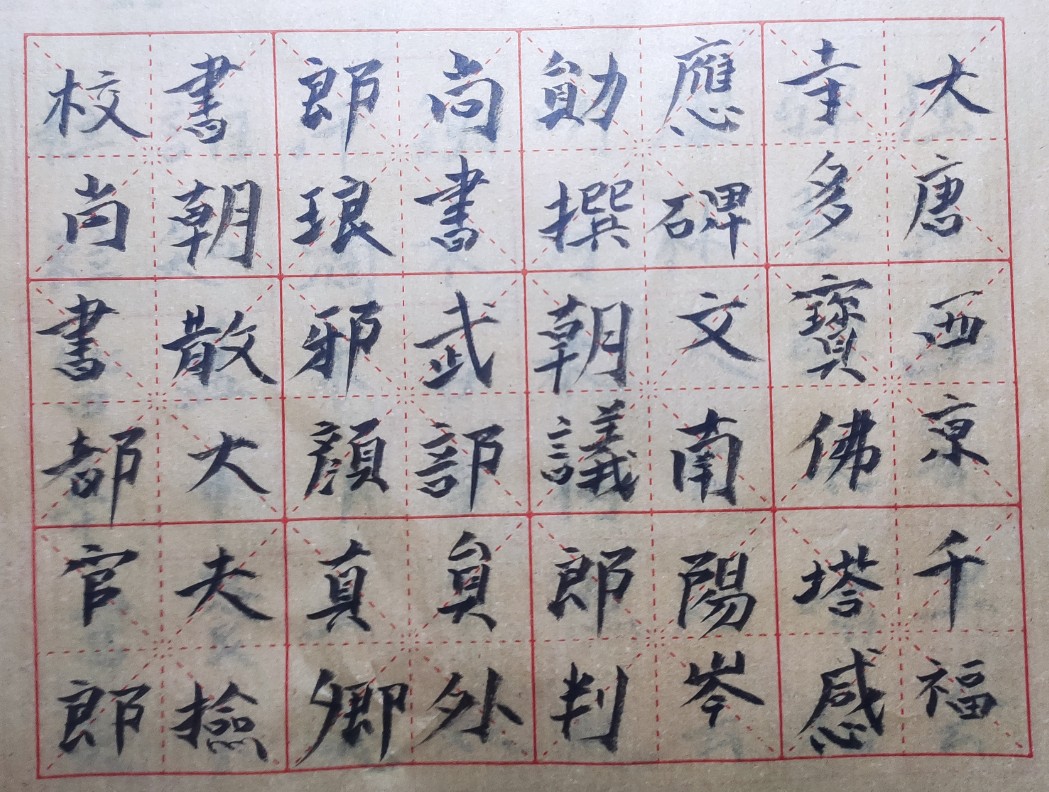 大唐西京千福
寺多寶佛塔感
應碑文南陽岑
勛撰朝議郎判
尚書武部員外
郎琅邪顏真卿
書朝散大夫撿
校尚書都官郎